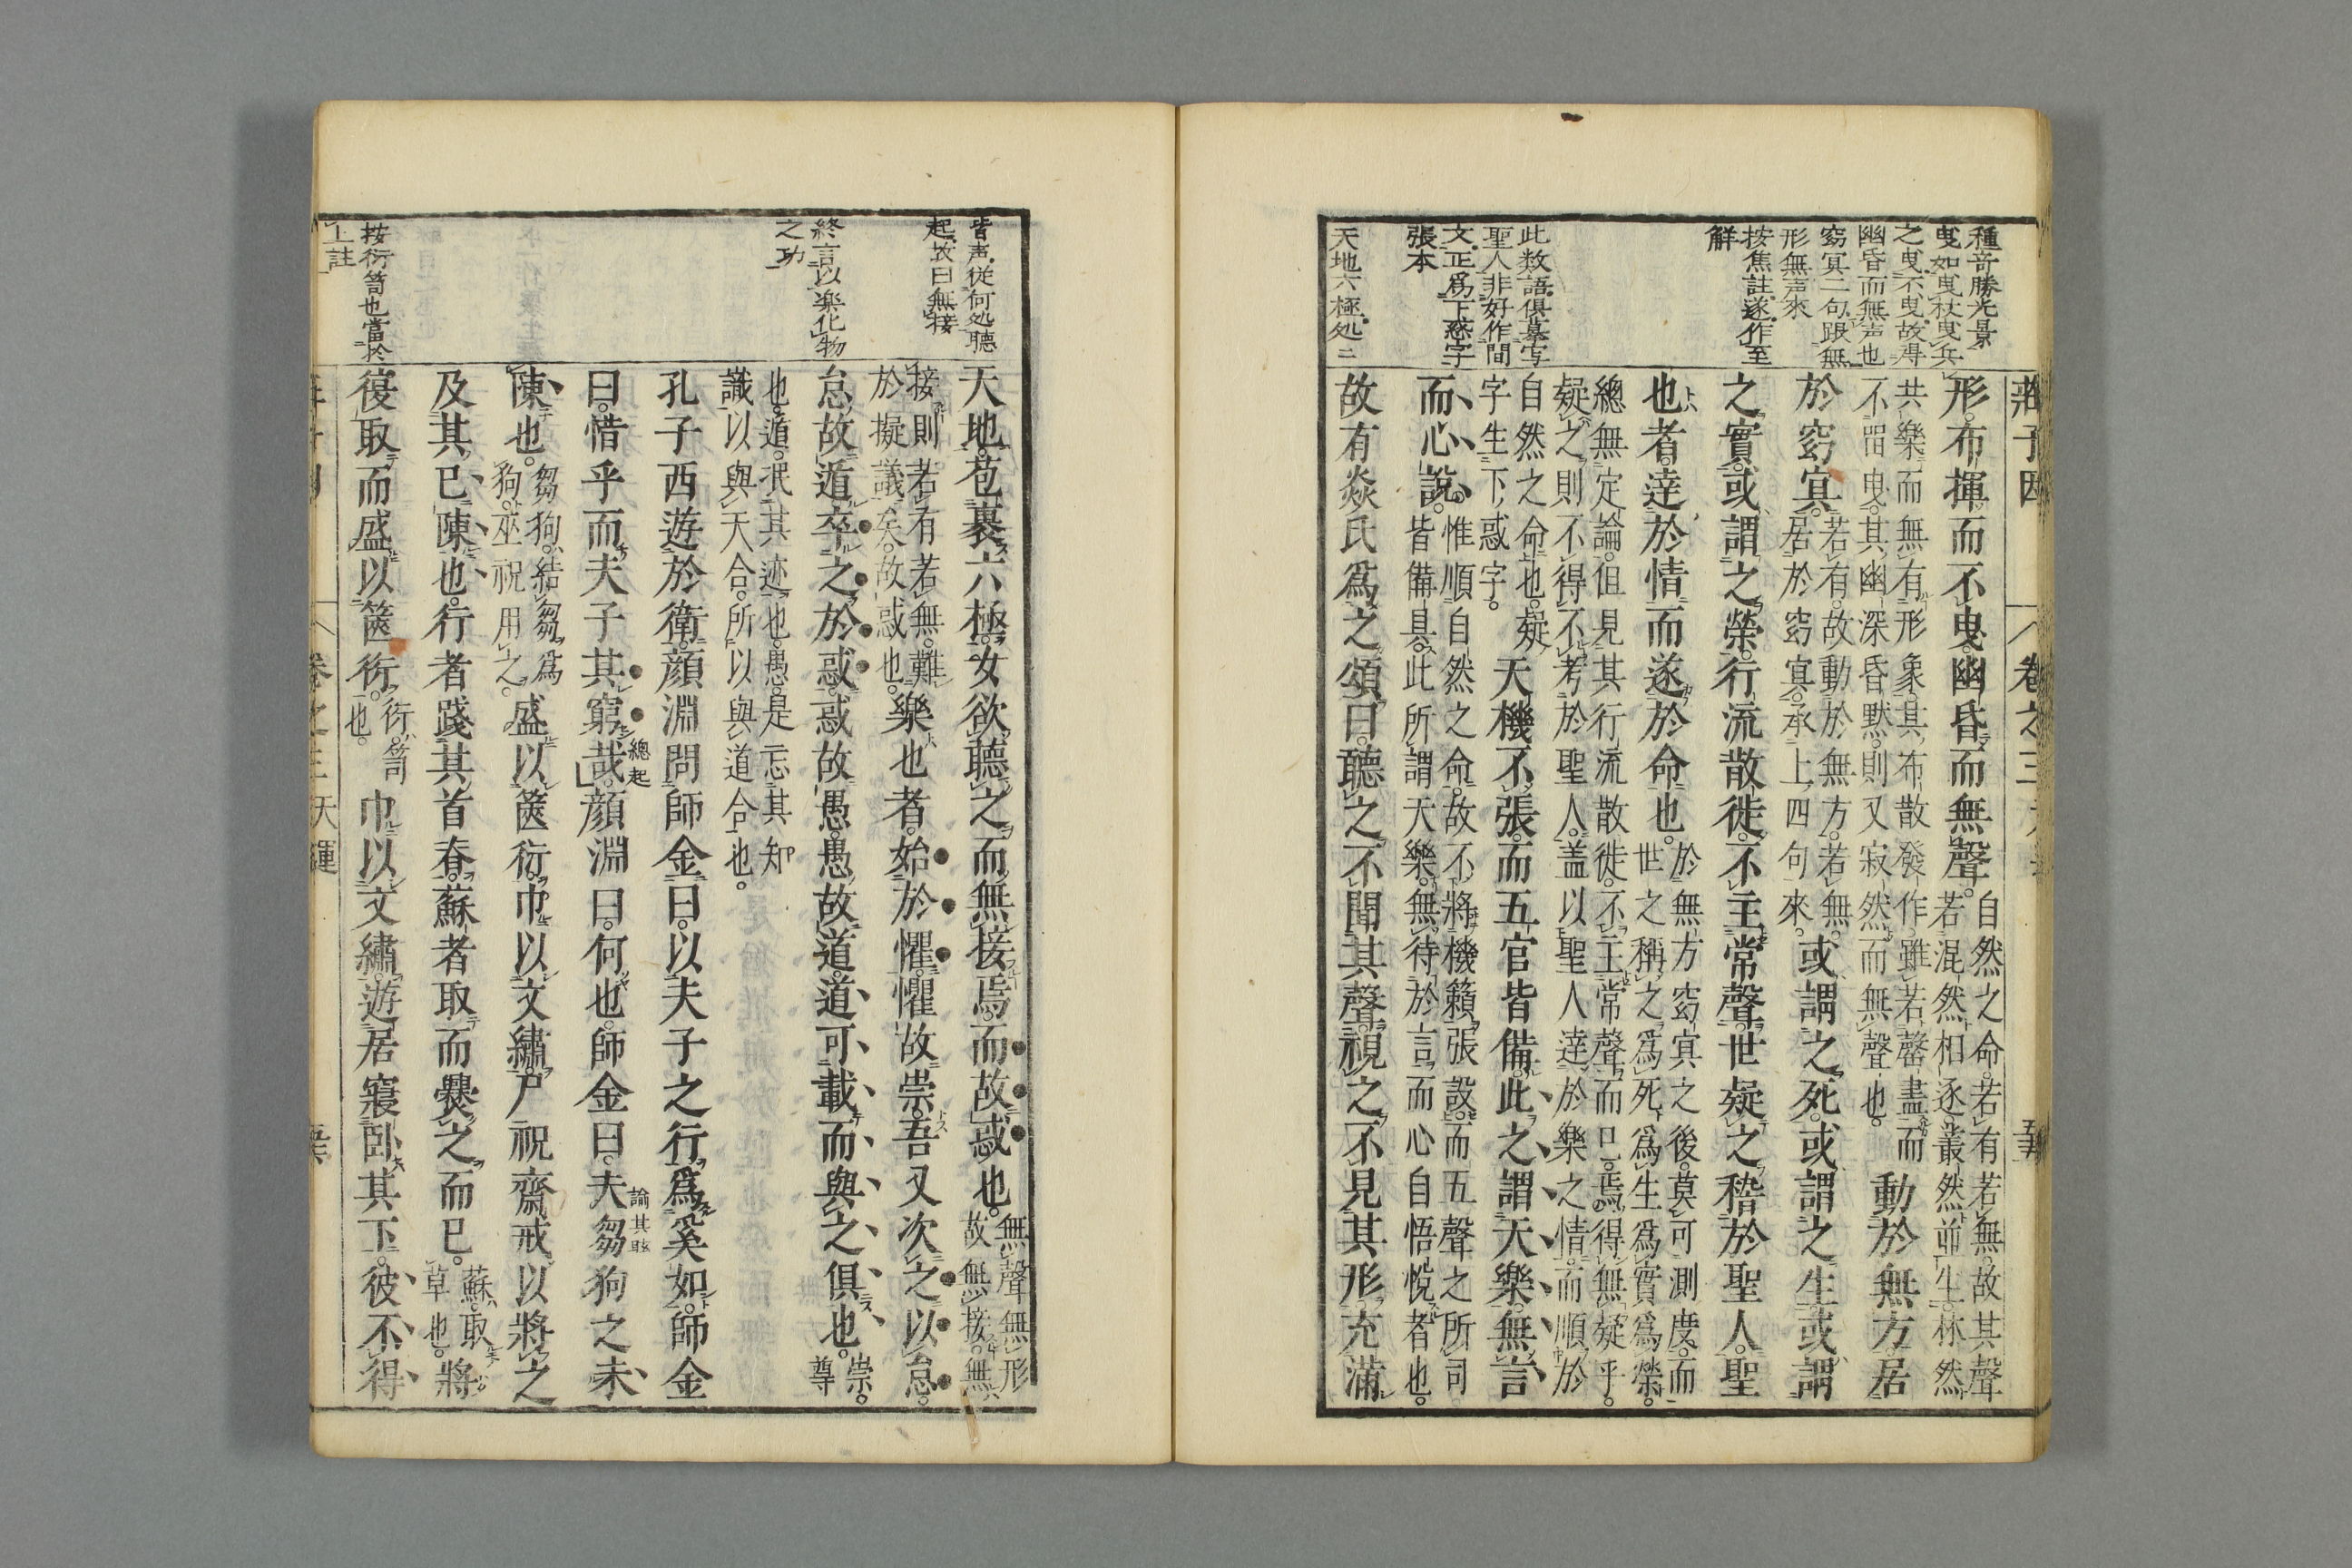 莊子因
卷之三
種奇勝光景
曳如曳杖曳兵
之曳不曳故得
幽昏而無声也
窈冥二句跟無
形無声來
按焦註遂作至
觧
此数語俱摹写
聖人非好作間
文正爲下惑字
張本
天地六極処二
形布揮而不曳幽昏而無聲。自然之命若有若無故其聲
若混然相逐叢然並生林然
共樂而無有形象其布散發作雖若罄盡而
不畱曳其幽深昏黙則又寂然而無聲也。動於無方居
於窈冥若有故動於無方若無
居於窈冥承上四句來。或謂之死或謂之生或謂
之實或謂之榮行流散徙不主常聲世疑之稽於聖人聖
也者達於情而遂於命也。於無方窈冥之後莫可測度而
世之稱之爲死爲生爲實爲榮。
總無定論但見其行流散徙不主常聲而已焉得無疑乎。
疑之則不得不考於聖人盖以聖人達於樂之情而順於
自然之命也疑
字生下惑字。天機不張而五官皆備此之謂天樂無言
而心說。惟順自然之命故不將機籟張設而五聲之所司
皆備具此所謂天樂無待於言而心自悟悅者也。
故有焱氏爲之頌曰聽之不聞其聲視之不見其形充滿
皆声從何処聽
起故曰無接
終言以楽化物
之功
按衍笥也當於
上註
天地苞裹六極女欲聽之而無接焉而故惑也。無聲無形
故無接無
接則若有若無難
於擬議矣故惑也。樂也者始於懼懼故祟吾又次之以怠
怠故遁卒之於惑惑故愚愚故道道可載而與之俱也。祟
尊
也遁泯其迹也愚是忘其知
識以與天合所以與道合也。
孔子西遊於衛顔淵問師金曰以夫子之行爲奚如師金
曰惜乎而夫子其窮哉總起顔淵曰何也師金曰夫芻狗之未
陳也。芻狗結芻爲
狗巫祝用之。盛以篋衍巾以文繡尸祝齋戒以將之
及其已陳也行者踐其首脊蘇者取而爨之而已。蘇取
草也。將
復取而盛以篋衍衍笥
也。巾以文繡遊居寢卧其下彼不得
卷之三 天運